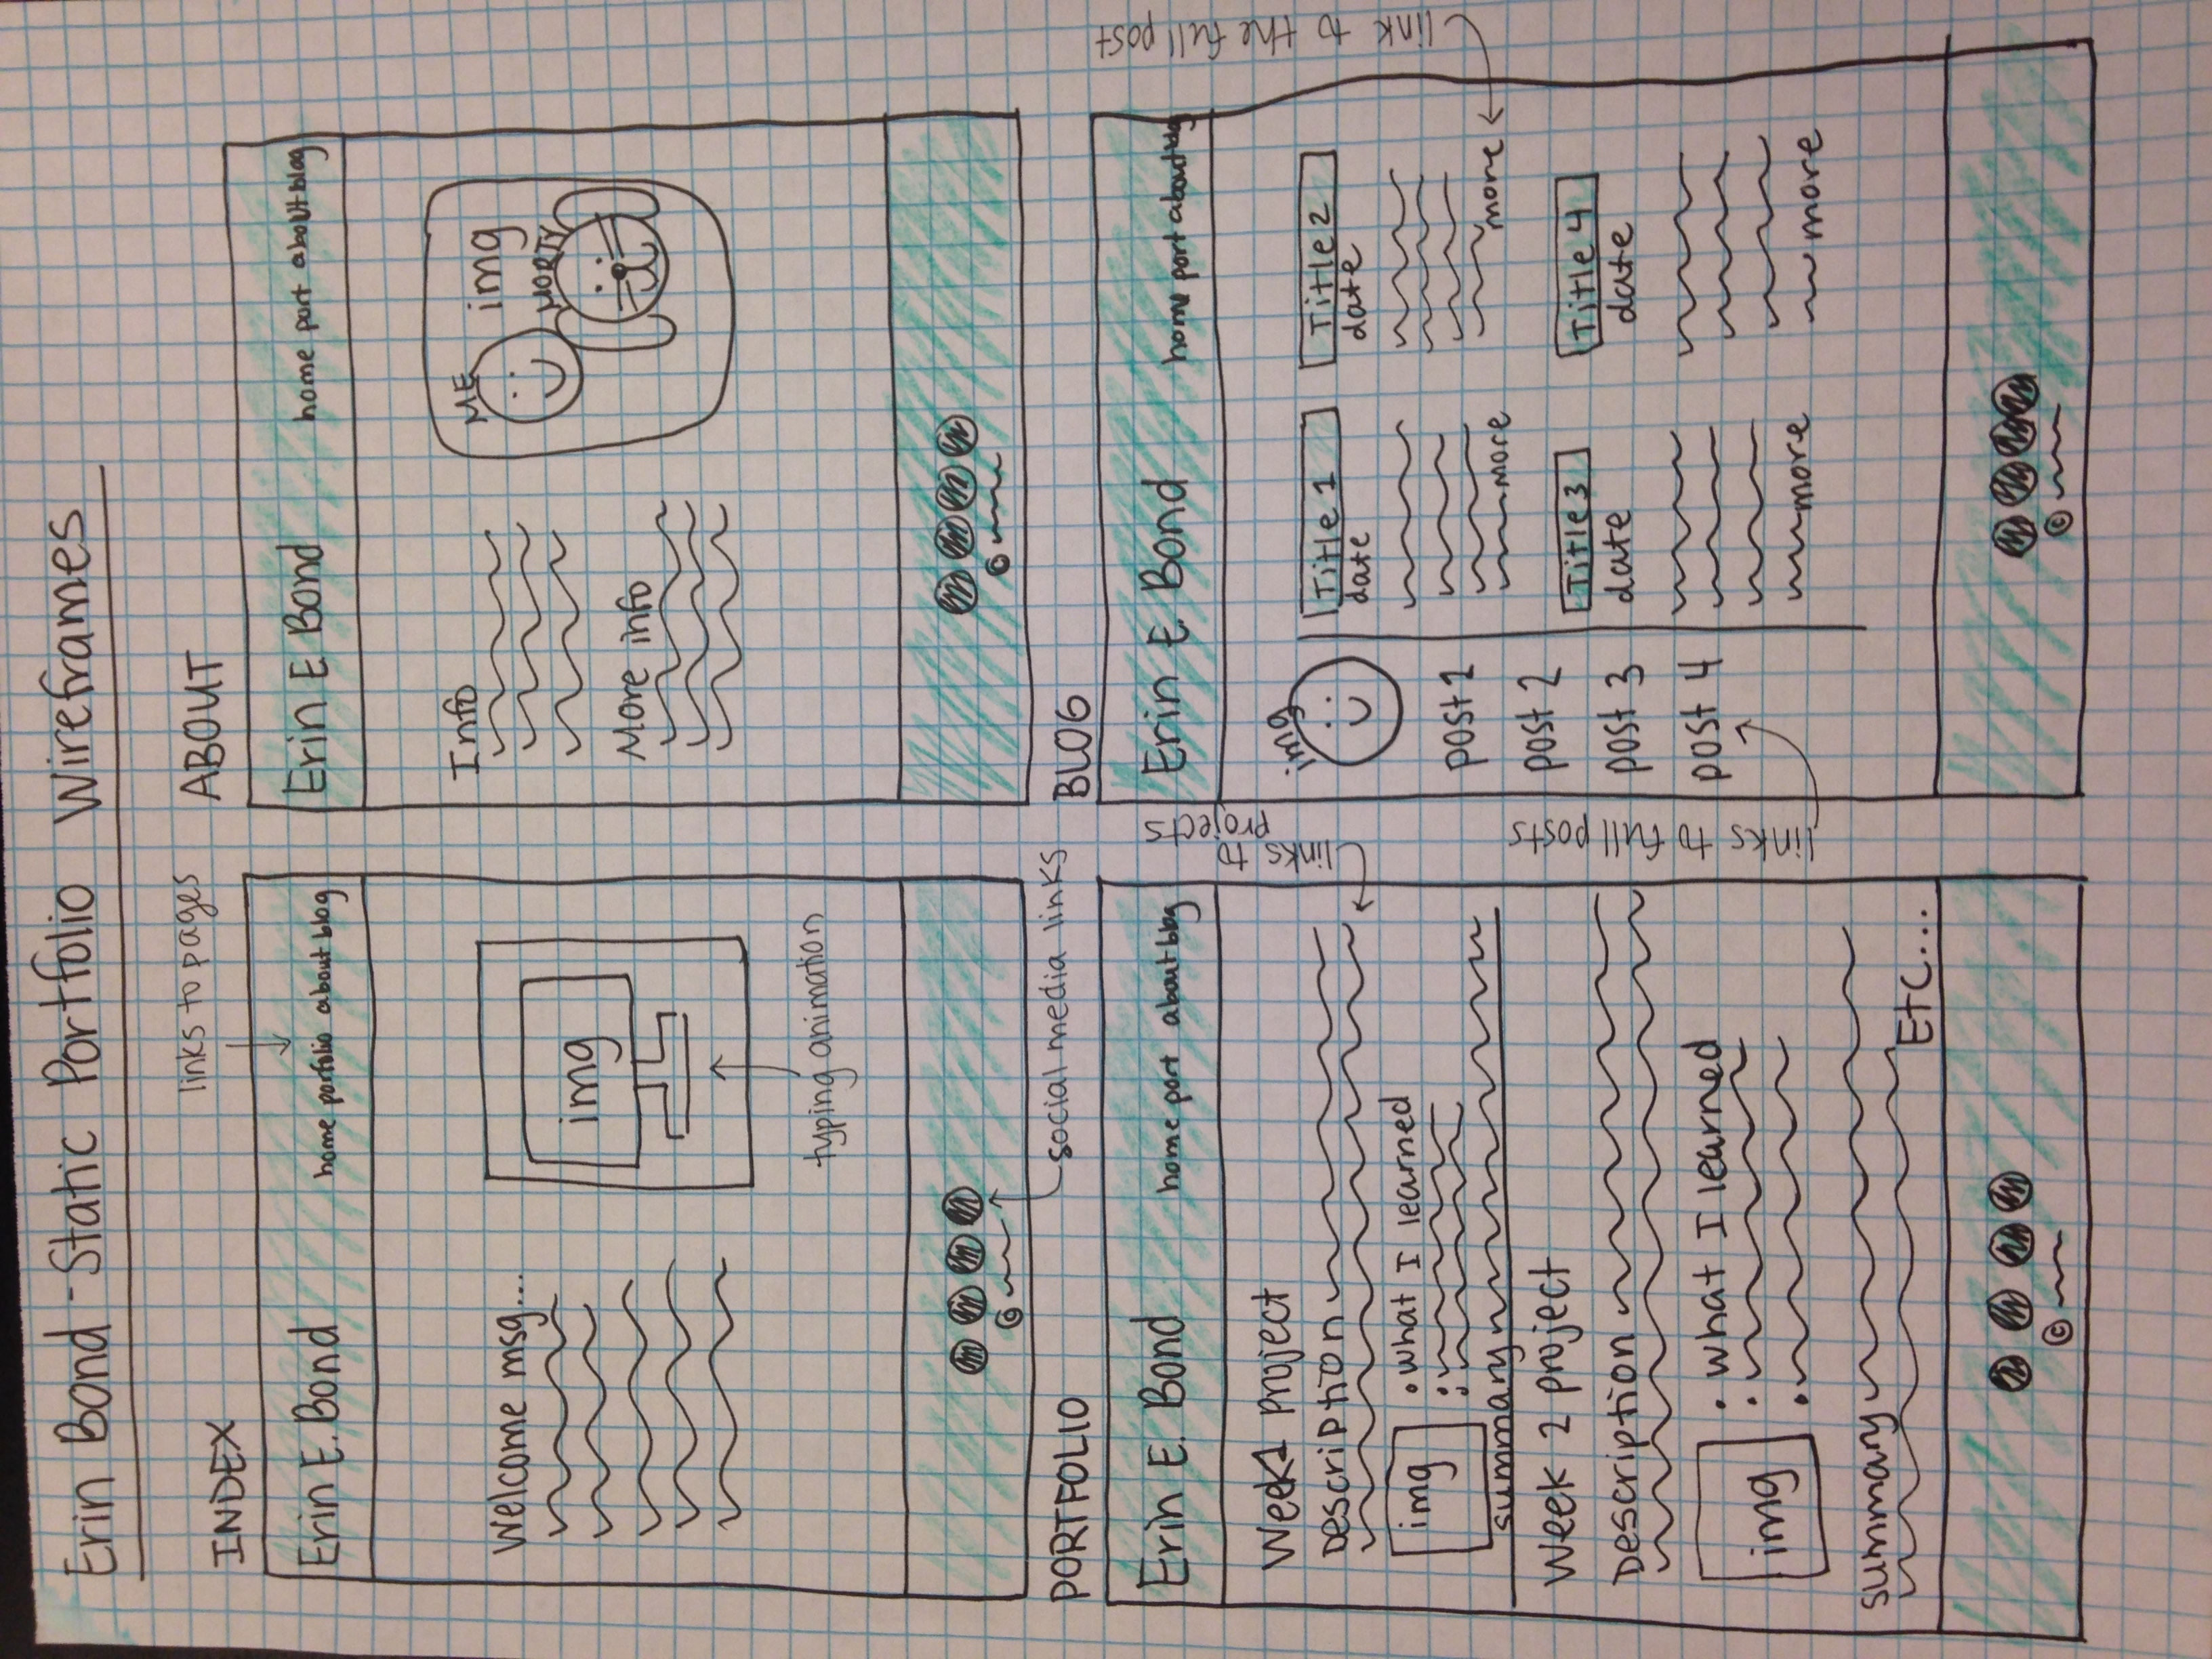 Erin Bond - Static Portfolio Wireframes
INDEX
links to pages
Erin E. Bond
home portfolio about blog
Welcome msg...
img
typing animation
©
social media links
ABOUT
Erin E Bond
home port about blog
Info
More info
ME
img
MORTY
©
PORTFOLIO
Erin E. Bond
home port about blog
Week 1 project
links to
projects
Description
img
• what I learned
•
•
summary
Week 2 project
Description
img
• what I learned
•
•
summary
Etc...
©
BLOG
Erin E. Bond
home port about blog
link to the full post
img
post 1
post 2
post 3
post 4
links to full posts
Title 1
date
more
Title 2
date
more
Title 3
date
more
Title 4
date
more
©